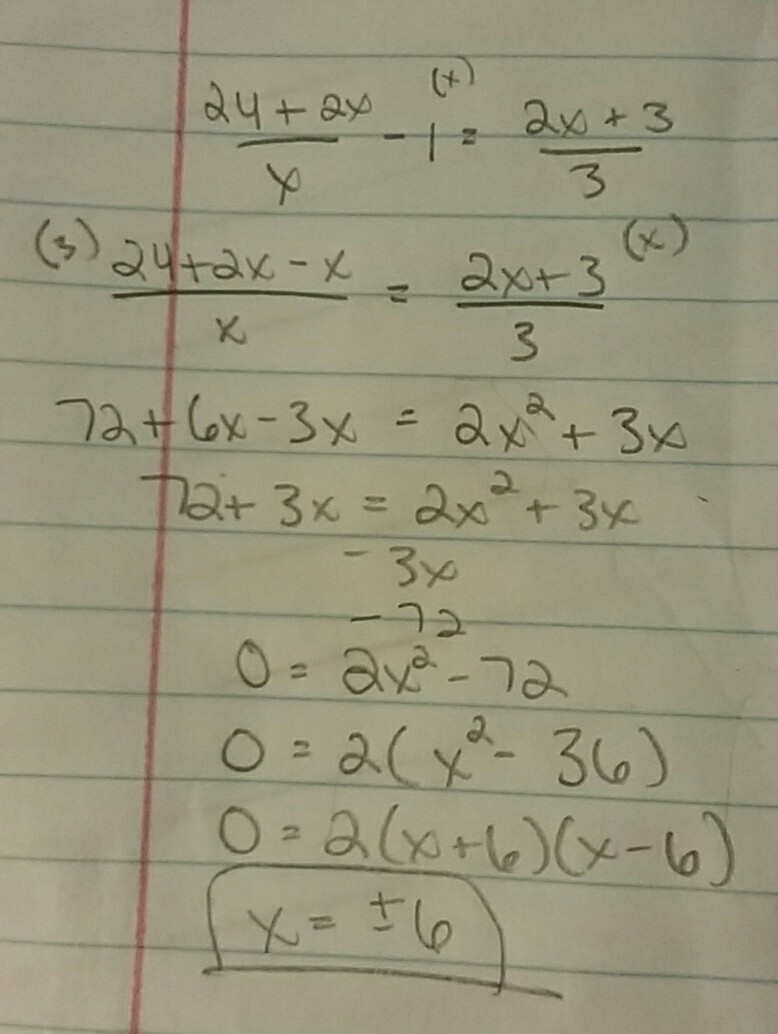 (x)
24 + 2x / x - 1 = 2x + 3 / 3
(3) 24+2x - x / x = 2x+3 / 3 (x)
72 + 6x - 3x = 2x² + 3x
72 + 3x = 2x² + 3x
- 3x
- 72
0 = 2x² - 72
0 = 2(x² - 36)
0 = 2(x+6)(x-6)
x = ±6